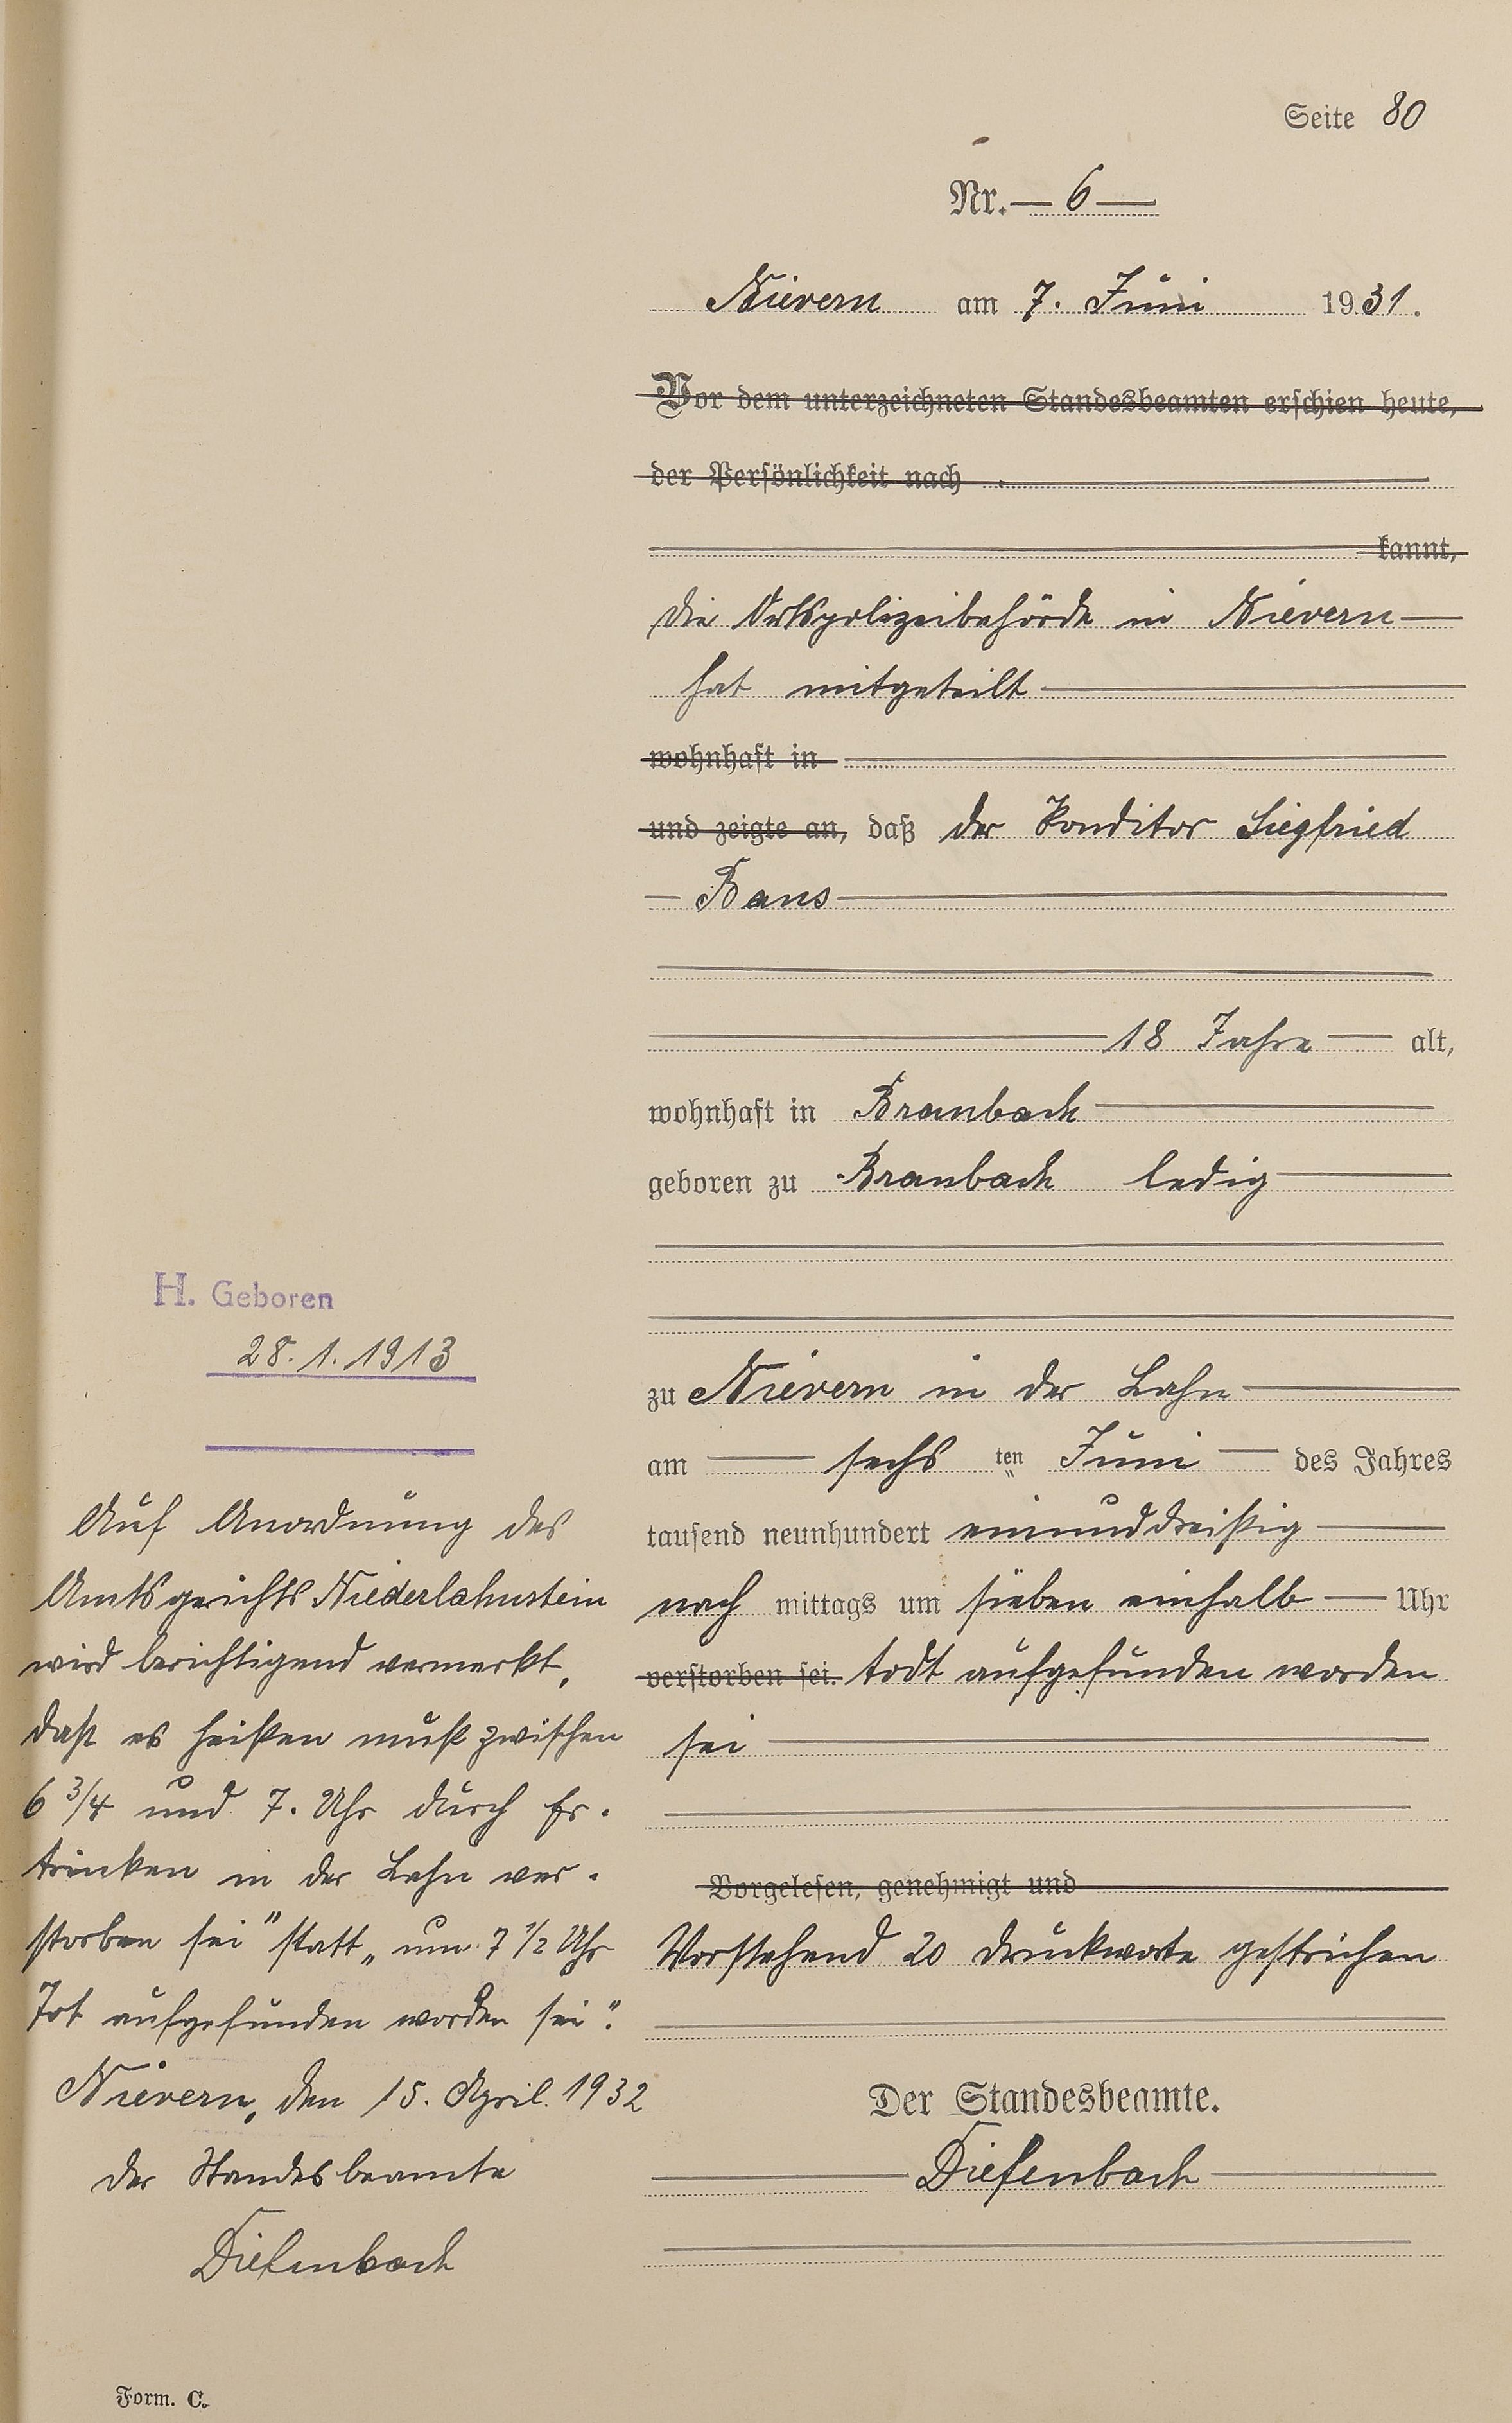 Seite 80
Nr. 6
Nievern am 7. Juni 1931.
Vor dem unterzeichneten Standesbeamten erschien heute,
der Persönlichkeit nach
kannt,
die Ortspolizeibehörde in Nievern
hat mitgeteilt
wohnhaft in
und zeigte an, daß der Konditor Siegfried
Bans
18 Jahre alt,
wohnhaft in Braubach
geboren zu Braubach ledig
zu Nievern in der Lahn
am sechs ten Juni des Jahres
tausend neunhundert einunddreißig
nach mittags um sieben einhalb Uhr
verstorben sei. todt aufgefunden worden
sei
Vorgelesen, genehmigt und
Vorstehend 20 Druckworte gestrichen
Der Standesbeamte.
Diefenbach
H. Geboren
28. 1. 1913
Auf Anordnung des
Amtsgerichts Niederlahnstein
wird berichtigend vermerkt,
daß es heißen muß zwischen
6 3/4 und 7. Uhr durch Er-
trinken in der Lahn ver-
storben sei" statt „um 7 1/2 Uhr
Tot aufgefunden worden sei".
Nievern, den 15. April. 1932
Der Standesbeamte
Diefenbach
Form. C.